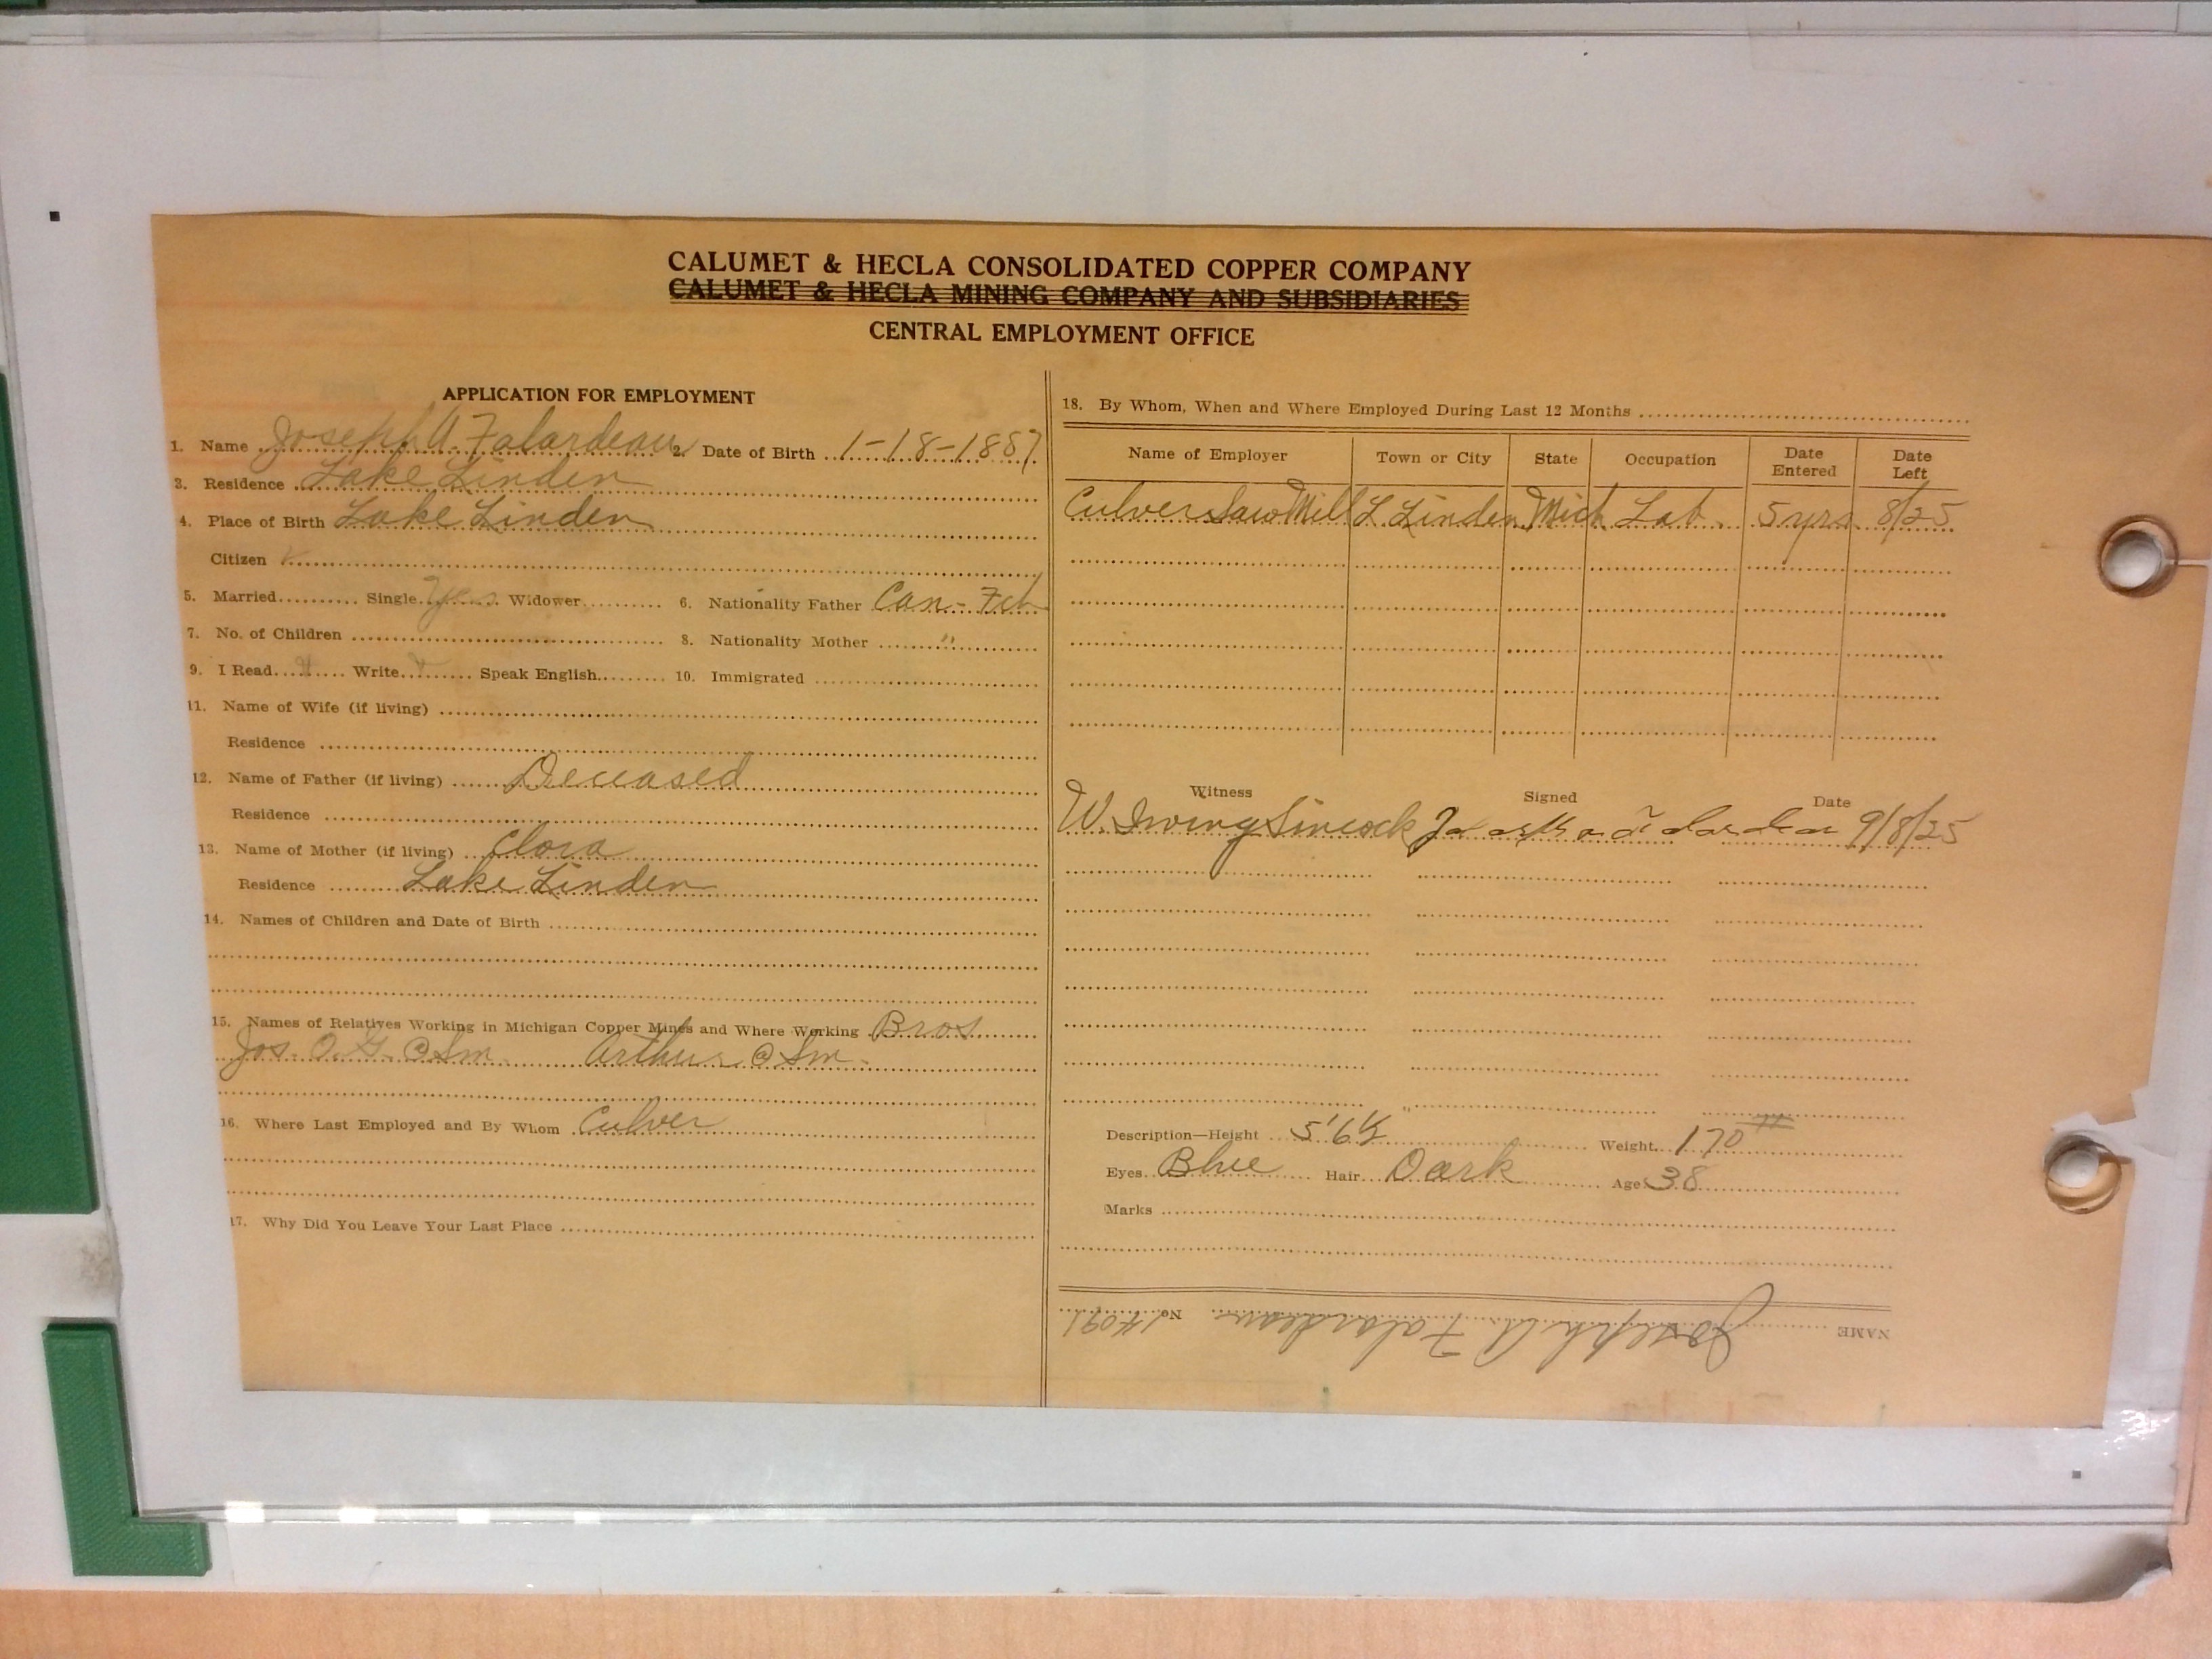 CALUMET & HECLA CONSOLIDATED COPPER COMPANY
CALUMET & HECLA MINING COMPANY AND SUBSIDIARIES
CENTRAL EMPLOYMENT OFFICE
APPLICATION FOR EMPLOYMENT
1. Name Joseph A. Falardeau 2. Date of Birth 1-18-1887
3. Residence Lake Linden
4. Place of Birth Lake Linden
Citizen
5. Married Single Yes Widower 6. Nationality Father Can-Fch
7. No. of Children 8. Nationality Mother "
9. I Read Write Speak English 10. Immigrated
11. Name of Wife (if living)
Residence
12. Name of Father (if living) Deceased
Residence
13. Name of Mother (if living) Clora
Residence Lake Linden
14. Names of Children and Date of Birth
15. Names of Relatives Working in Michigan Copper Mines and Where Working Bros
Jos. O. G. @ Sm. Arthur @ Sm.
16. Where Last Employed and By Whom Culver
17. Why Did You Leave Your Last Place
18. By Whom, When and Where Employed During Last 12 Months
Name of Employer Town or City State Occupation Date Entered Date Left
Culver Saw Mill L Linden Mich Lab. 5 yrs 8/25
Witness Signed Date
W. Irving Sincock 9/8/25
Description—Height 5'6½ Weight 170
Eyes Blue Hair Dark Age 38
Marks
NAME Joseph A. Falardeau No. 14091